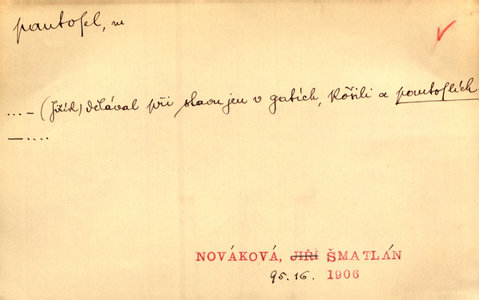 pantofel, m
.... – (Jiřík) dělával při stavu jen v gatích, košili a pantoflích
– ....
NOVÁKOVÁ, JIŘÍ ŠMATLÁN
95.16. 1906